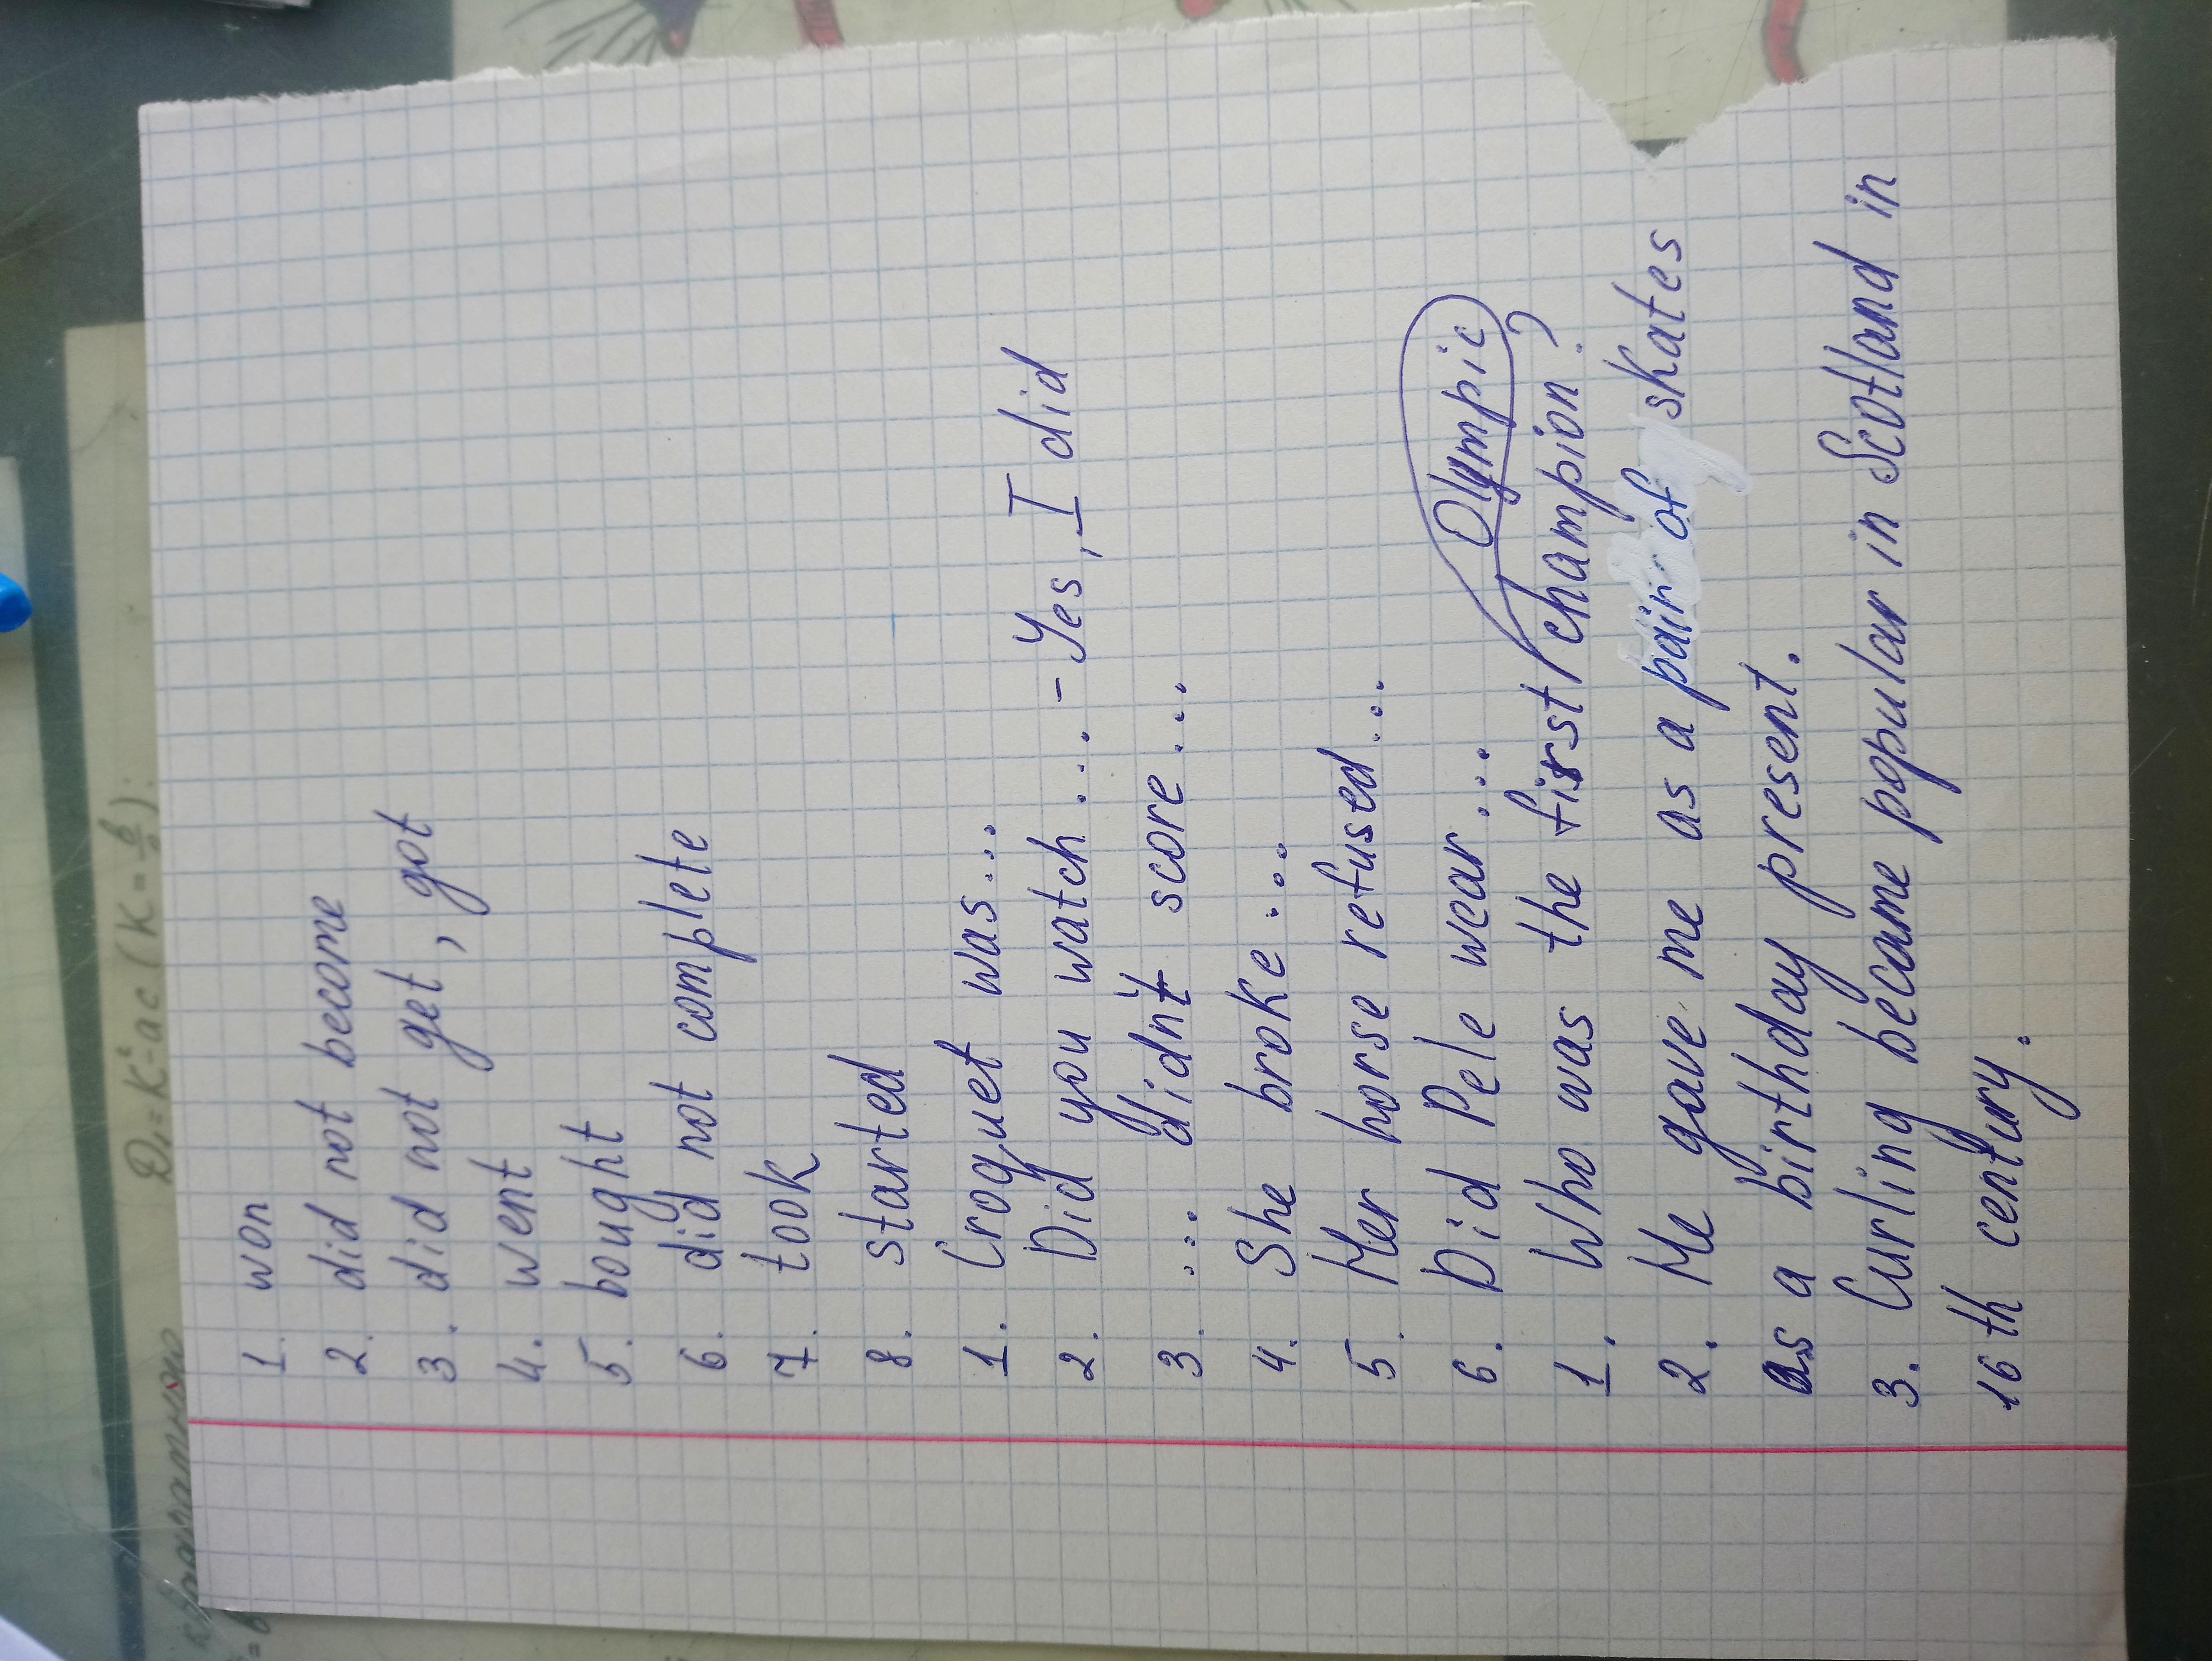 D₁ = K²-ac (K = b/2):
1. won
2. did not become
3. did not get, got
4. went
5. bought
6. did not complete
7. took
8. started
1. Croquet was...
2. Did you watch... - Yes, I did
3. ... didn't score....
4. She broke....
5. Her horse refused...
6. Did Pele wear...
Olympic
1. Who was the first champion?
2. He gave me as a pair of skates
as a birthday present.
3. Curling became popular in Scotland in
16 th century.